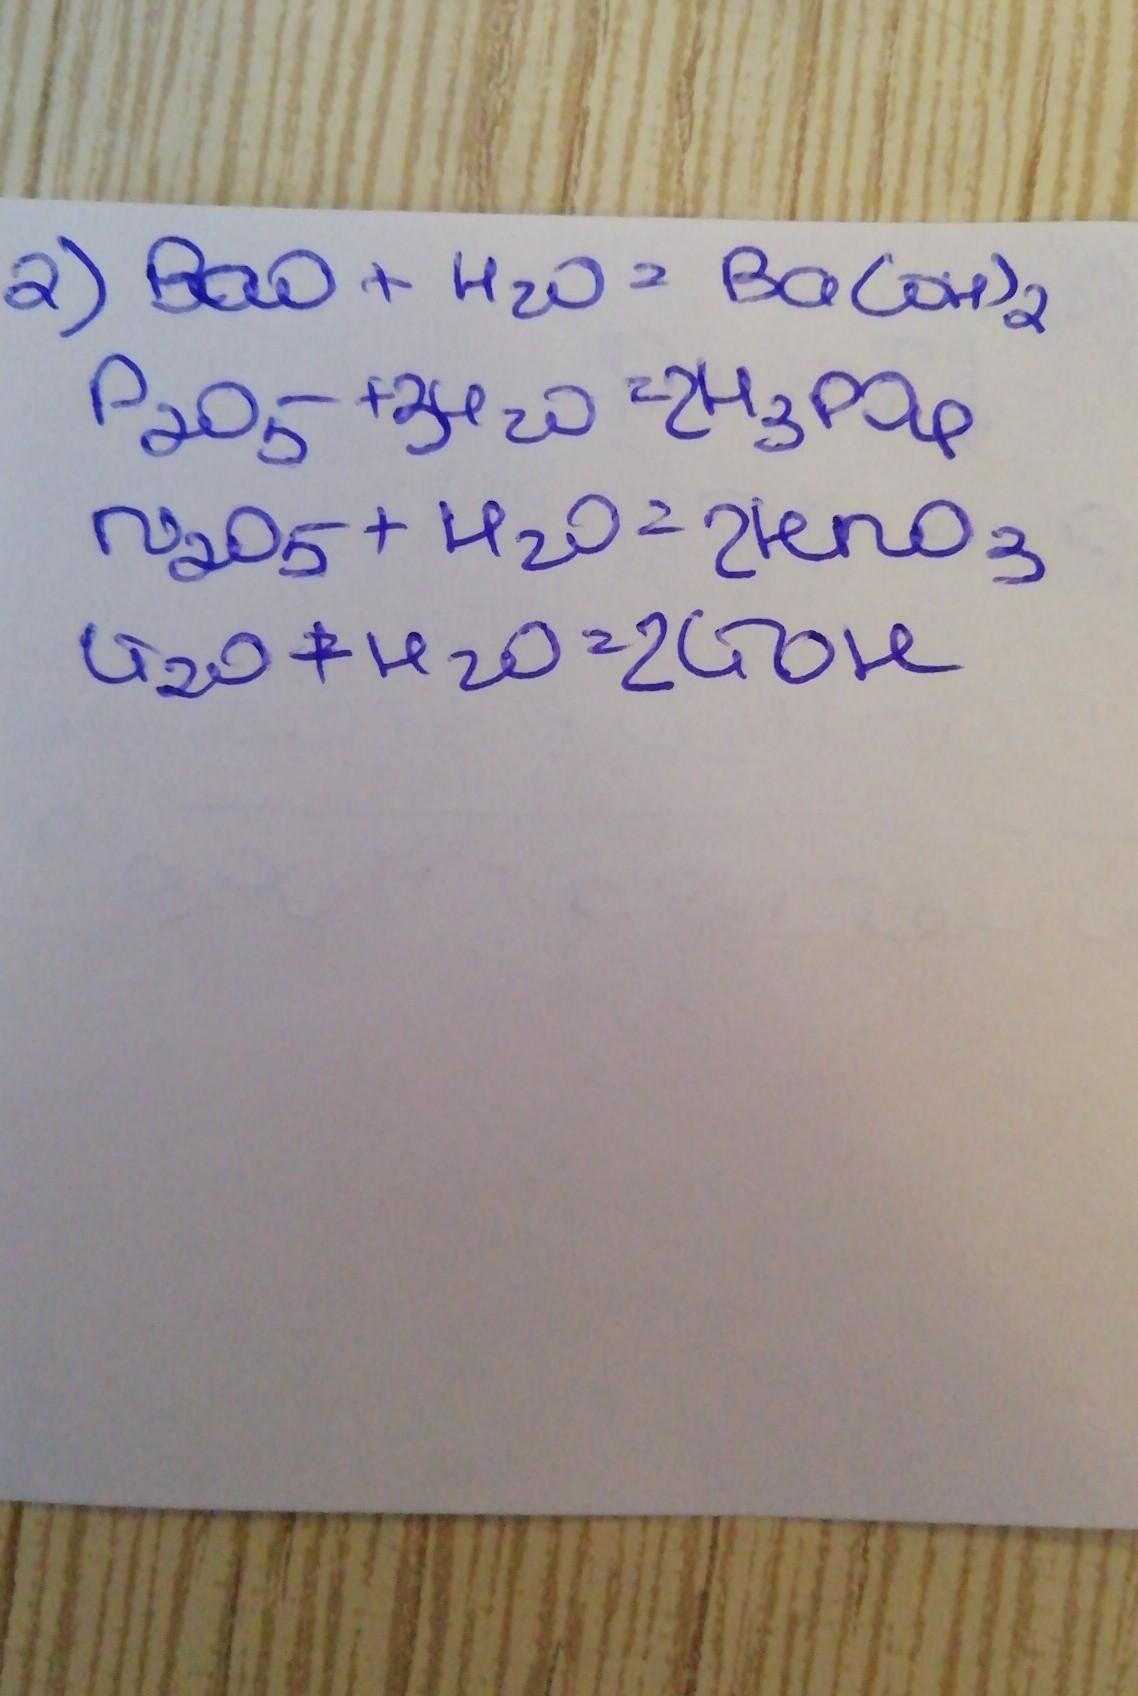 2) BaO + H2O = Ba(OH)2
P2O5 + 3H2O = 2H3PO4
N2O5 + H2O = 2HNO3
Li2O + H2O = 2LiOH